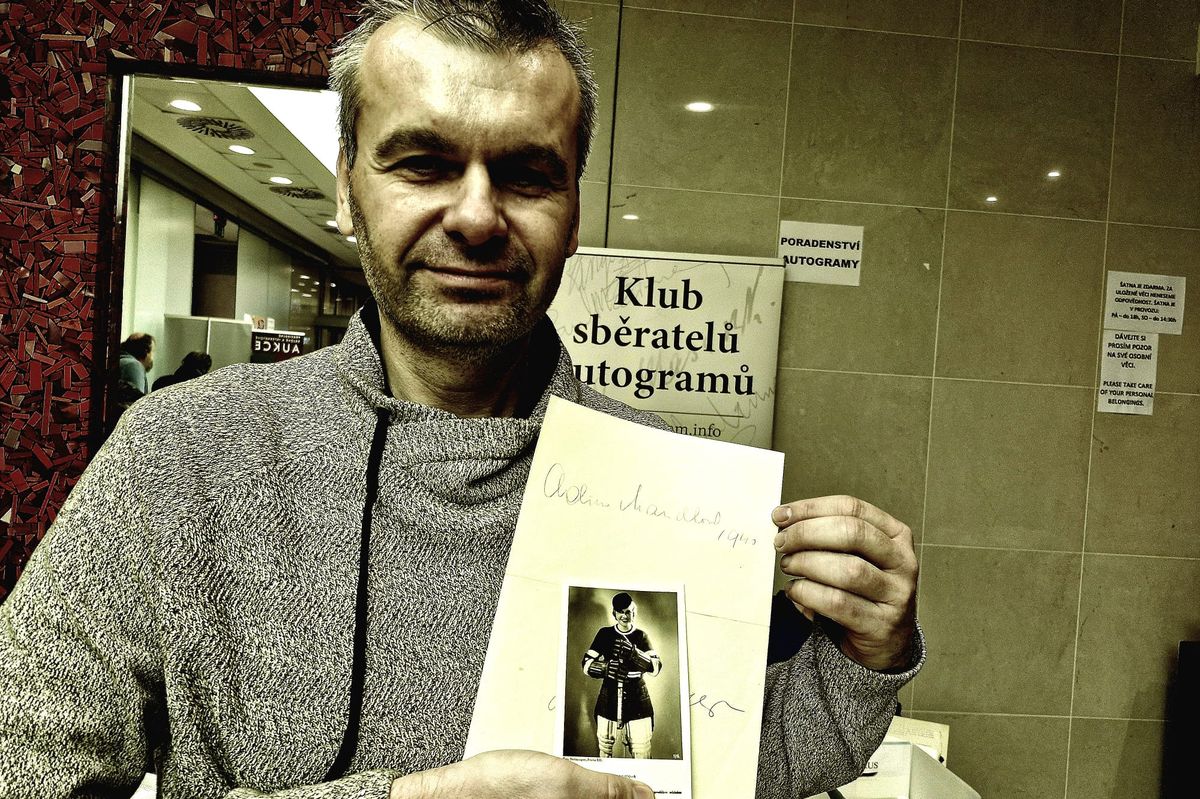 PORADENSTVÍ
AUTOGRAMY
Klub
sběratelů
utogramů
m.info
AUKCE
ŠATNA JE ZDARMA. ZA
ULOŽENÉ VĚCI NENESEME
ODPOVĚDNOST. ŠATNA JE
V PROVOZU:
PÁ – do 18h, SO – do 14:30h
DÁVEJTE SI
PROSÍM POZOR
NA SVÉ OSOBNÍ
VĚCI.
PLEASE TAKE CARE
OF YOUR PERSONAL
BELONGINGS.
1940
US